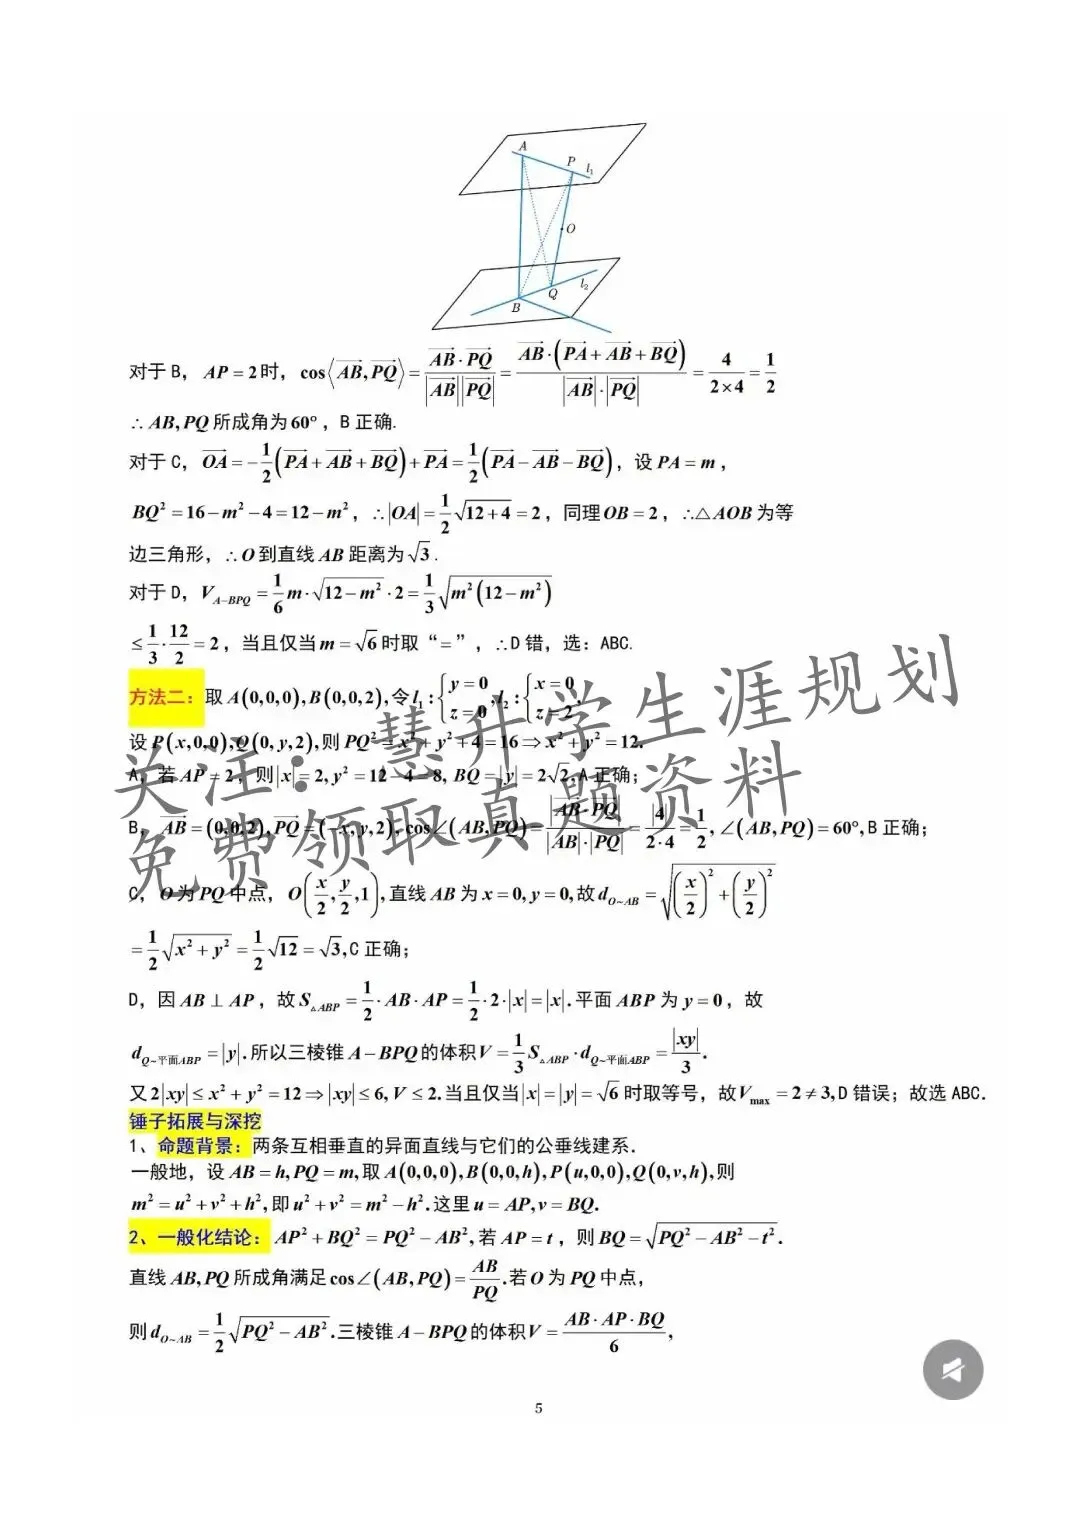 A
P
l₁
O
Q
l₂
B
对于 B，AP = 2 时，cos⟨AB→, PQ→⟩ = (AB→·PQ→)/(|AB→||PQ→|) = (AB→·(PA→ + AB→ + BQ→))/(|AB→|·|PQ→|) = 4/(2×4) = 1/2
∴ AB, PQ 所成角为 60°，B 正确.
对于 C，OA→ = -1/2(PA→ + AB→ + BQ→) + PA→ = 1/2(PA→ - AB→ - BQ→)，设 PA = m，
BQ² = 16 - m² - 4 = 12 - m²，∴|OA| = 1/2√(12+4) = 2，同理 OB = 2，∴△AOB 为等
边三角形，∴O 到直线 AB 距离为 √3.
对于 D，V_{A-BPQ} = 1/6 m·√(12 - m²)·2 = 1/3√(m²(12 - m²))
≤ 1/3·12/2 = 2，当且仅当 m = √6 时取“=”，∴D 错，选：ABC.
方法二：取 A(0,0,0), B(0,0,2), 令 l₁:{y = 0 z = 0, l₂:{x = 0 z = 2,
设 P(x,0,0), Q(0,y,2), 则 PQ² = x² + y² + 4 = 16 ⇒ x² + y² = 12.
A，若 AP = 2，则 |x| = 2, y² = 12 - 4 = 8, BQ = |y| = 2√2, A 正确；
B，AB→ = (0,0,2), PQ→ = (-x, y, 2), cos∠(AB, PQ) = |AB→·PQ→|/(|AB→|·|PQ→|) = |4|/(2·4) = 1/2, ∠(AB, PQ) = 60°, B 正确；
C，O 为 PQ 中点，O(x/2, y/2, 1), 直线 AB 为 x = 0, y = 0, 故 d_{O~AB} = √((x/2)² + (y/2)²)
= 1/2√(x² + y²) = 1/2√12 = √3, C 正确；
D，因 AB ⊥ AP，故 S_{△ABP} = 1/2·AB·AP = 1/2·2·|x| = |x|. 平面 ABP 为 y = 0，故
d_{Q~平面ABP} = |y|. 所以三棱锥 A - BPQ 的体积 V = 1/3 S_{△ABP}·d_{Q~平面ABP} = |xy|/3.
又 2|xy| ≤ x² + y² = 12 ⇒ |xy| ≤ 6, V ≤ 2. 当且仅当 |x| = |y| = √6 时取等号，故 V_max = 2 ≠ 3, D 错误；故选 ABC.
锤子拓展与深挖
1、命题背景：两条互相垂直的异面直线与它们的公垂线建系.
一般地，设 AB = h, PQ = m, 取 A(0,0,0), B(0,0,h), P(u,0,0), Q(0,v,h), 则
m² = u² + v² + h², 即 u² + v² = m² - h². 这里 u = AP, v = BQ.
2、一般化结论：AP² + BQ² = PQ² - AB², 若 AP = t，则 BQ = √(PQ² - AB² - t²).
直线 AB, PQ 所成角满足 cos∠(AB, PQ) = AB/PQ. 若 O 为 PQ 中点，
则 d_{O~AB} = 1/2√(PQ² - AB²). 三棱锥 A - BPQ 的体积 V = (AB·AP·BQ)/6,
5
关注：慧升学生涯规划
免费领取真题资料